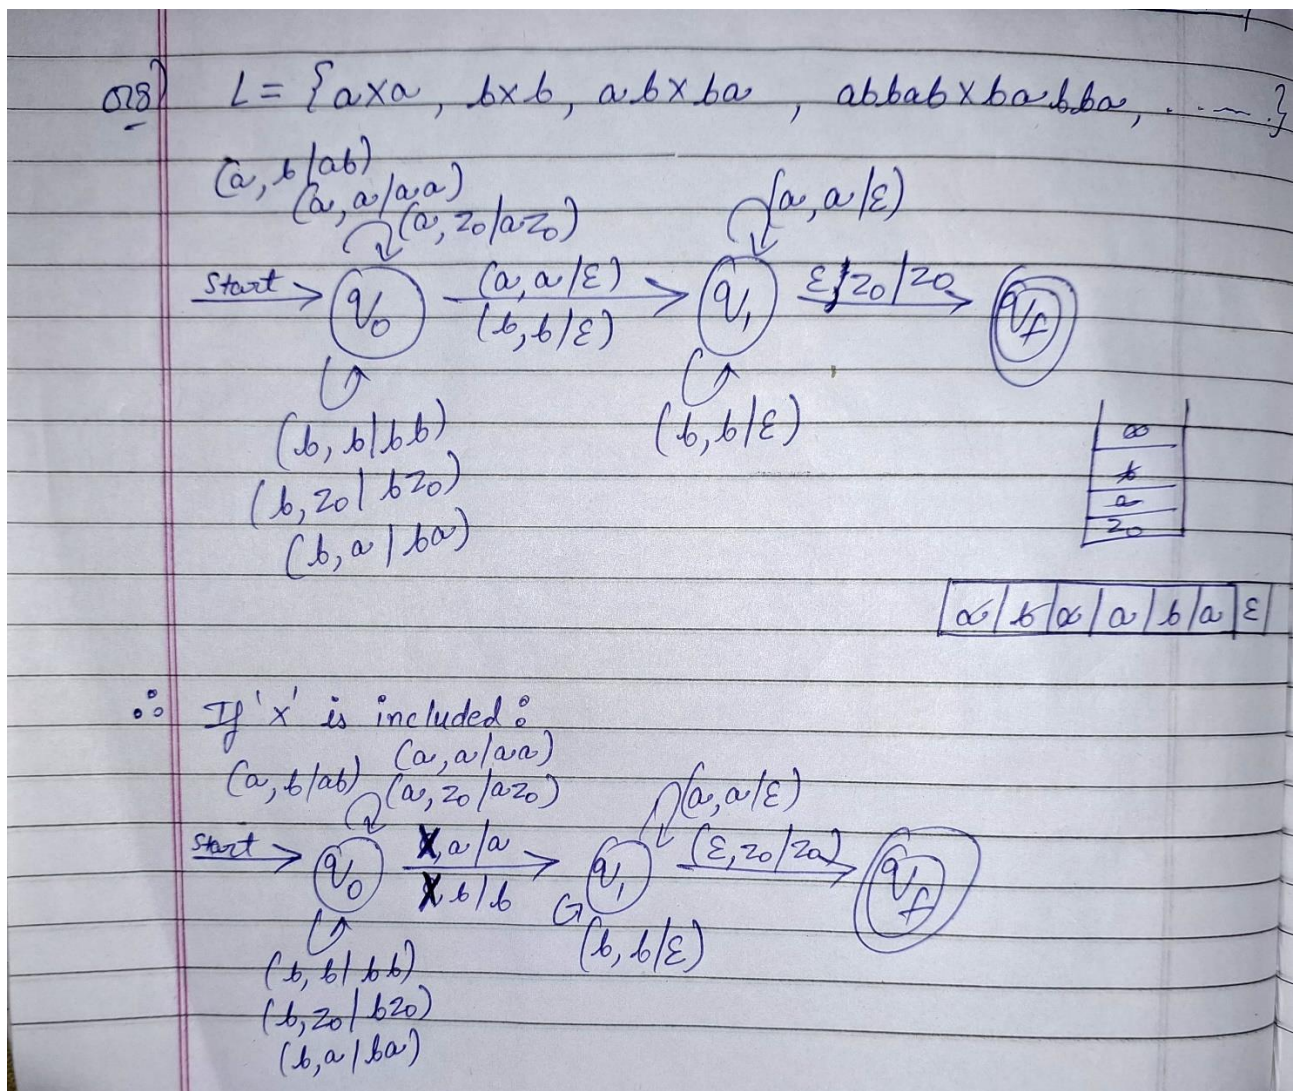 Q28) L = {axa, bxb, abxba, abbabxbabba, ......}
(a, b/ab)
(a, a/aa)
(a, z0/az0)
(a, a/ε)
Start
q0
(a, a/ε)
(b, b/ε)
q1
ε, z0/z0
qf
(b, b/bb)
(b, z0/bz0)
(b, a/ba)
(b, b/ε)
a
z0
a b a a b a ε
∴ If 'x' is included:
(a, a/aa)
(a, b/ab) (a, z0/az0)
(a, a/ε)
Start
q0
X, a/a
X, b/b
q1
(ε, z0/z0)
qf
(b, b/ε)
(b, b/bb)
(b, z0/bz0)
(b, a/ba)